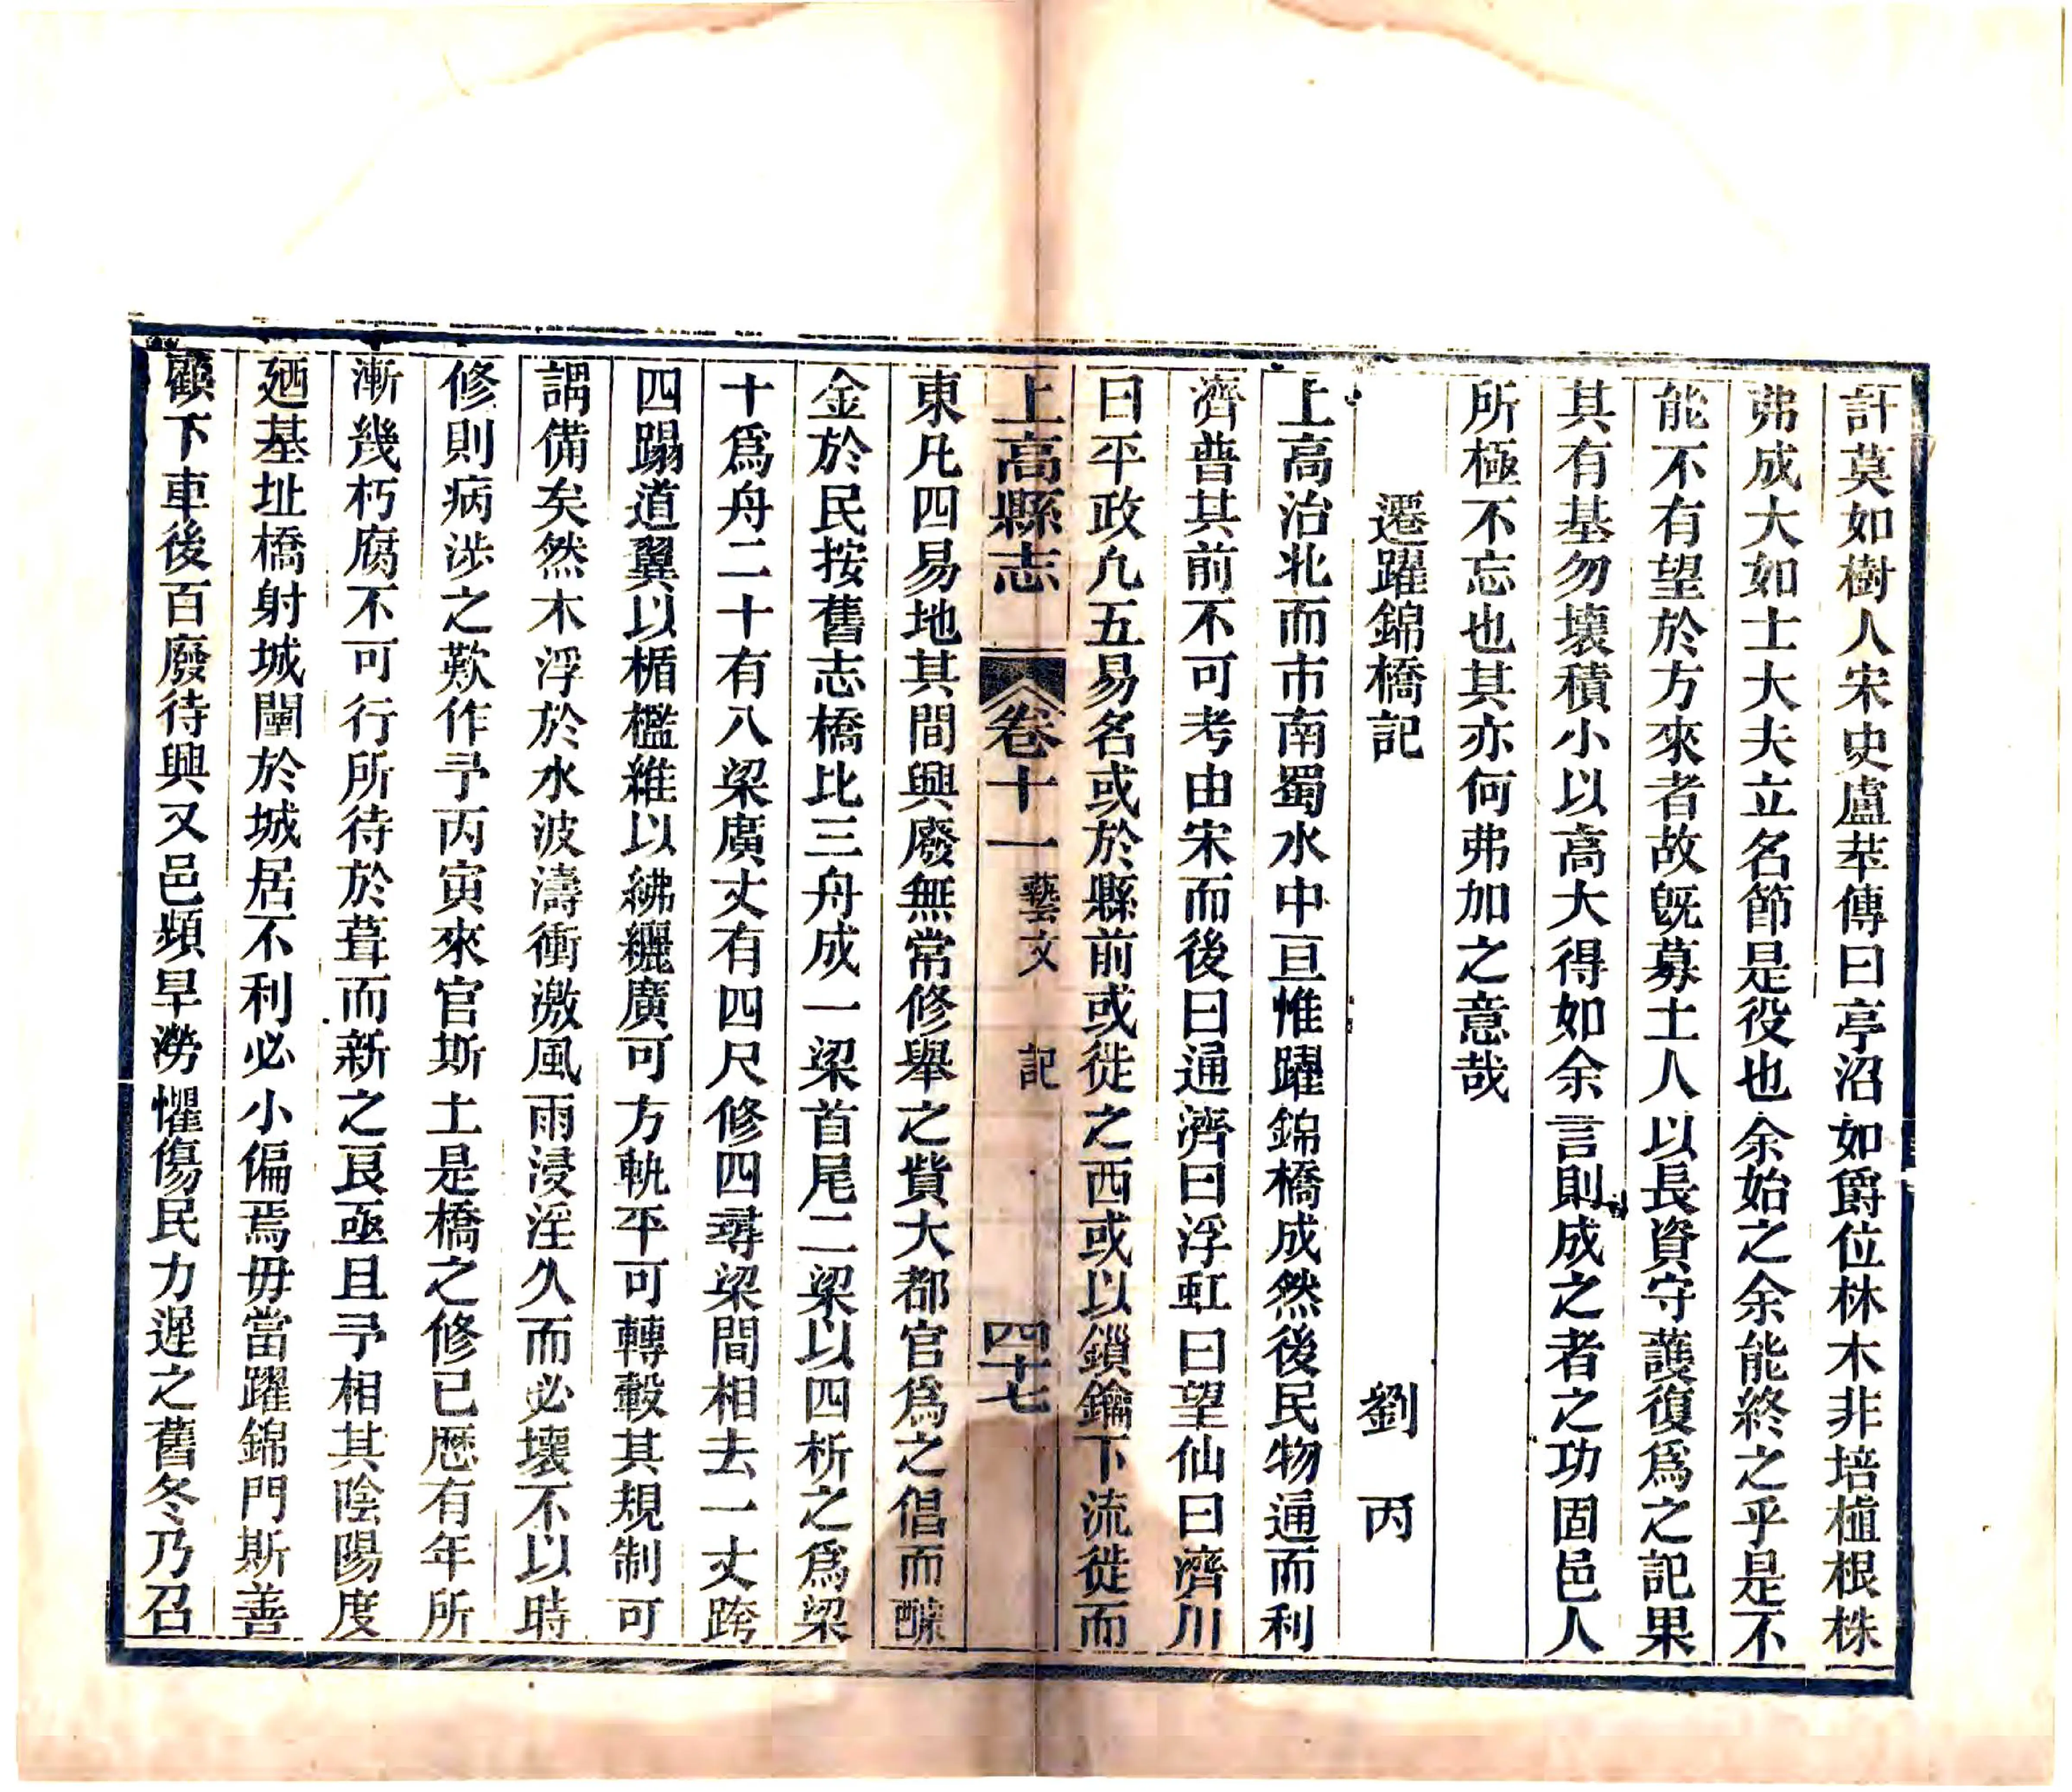 計莫如樹人宋史盧萃傳曰亭沼如爵位林木非培植根株
弗成大如士大夫立名節是役也余始之余能終之乎是不
能不有望於方來者故旣募土人以長資守護復爲之記果
其有基勿壞積小以高大得如余言則成之者之功固邑人
所極不忘也其亦何弗加之意哉
遷躍錦橋記 劉丙
上高治北而市南蜀水中亘惟躍錦橋成然後民物通而利
濟普其前不可考由宋而後曰通濟曰浮虹曰望仙曰濟川
曰平政凢五易名或於縣前或徙之西或以鎖鑰下流徙而
上高縣志 卷十一 藝文 記 四十七
東凡四易地其間興廢無常修舉之貲大都官爲之倡而醵
金於民按舊志橋比三舟成一梁首尾二梁以四析之爲梁
十爲舟二十有八梁廣丈有四尺修四尋梁間相去一丈跨
四蹋道翼以楯檻維以紼纚廣可方軌平可轉轂其規制可
謂備矣然木浮於水波濤衝激風雨浸淫久而必壞不以時
修則病涉之歎作予丙寅來官斯土是橋之修已歷有年所
漸幾朽腐不可行所待於葺而新之良亟且予相其陰陽度
廼基址橋射城闉於城居不利必小偏焉毋當躍錦門斯善
顧下車後百廢待興又邑頻旱澇懼傷民力遲之舊冬乃召